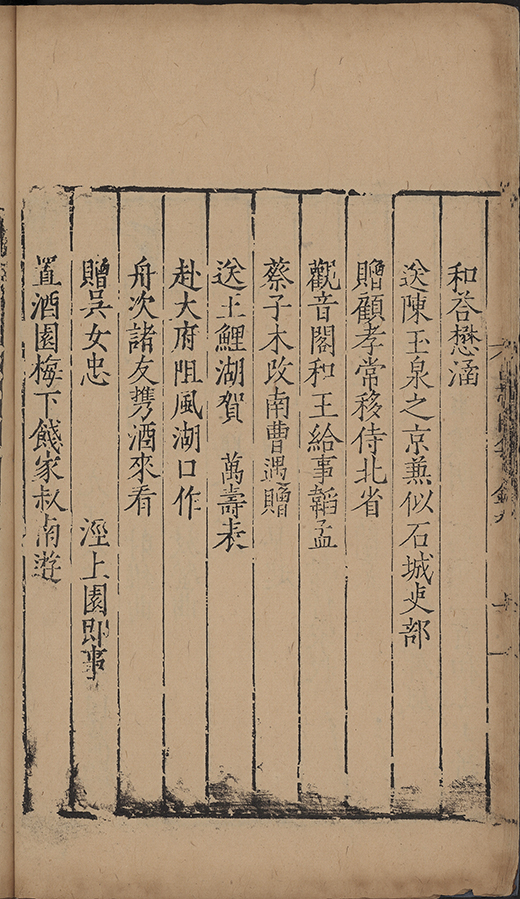 和答懋涵
送陳玉泉之京兼似石城吏部
贈顧孝常移侍北省
觀音閣和王給事韜孟
蔡子木改南曹遇贈
送王鯉湖賀　萬壽表
赴大府阻風湖口作
舟次諸友携酒來看
贈吳女忠　涇上園即事
置酒園梅下餞家叔南遊